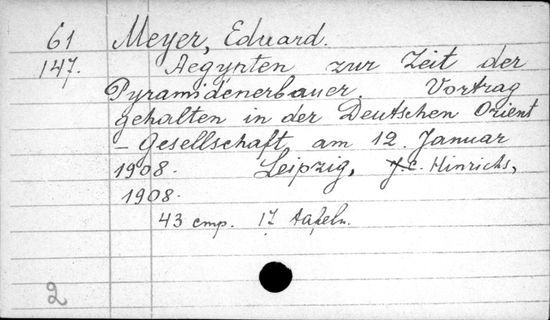 61 Meyer, Eduard.
147. Aegypten zur Zeit der
Pyramidenerbauer. Vortrag
gehalten in der Deutschen Orient
- Gesellschaft am 12. Januar
1908. Leipzig, J.C. Hinrichs,
1908.
43 стр. 17 Tafeln.
2